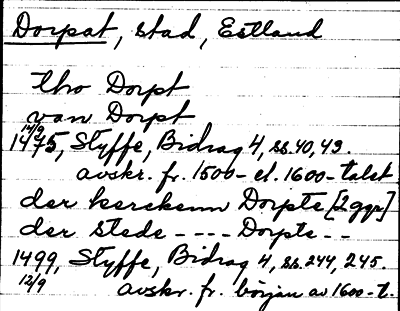 Dorpat, stad, Estland
tho Dorpt
van Dorpt
14/9
1475, Styffe, Bidrag 4, ss. 40, 49.
avskr. fr. 1500- el. 1600-talet
der kerckenn Dorpte [2 ggr]
der stede - - - - Dorpte - -
1499, Styffe, Bidrag 4, ss. 244, 245.
12/9 avskr. fr. början av 1600-t.